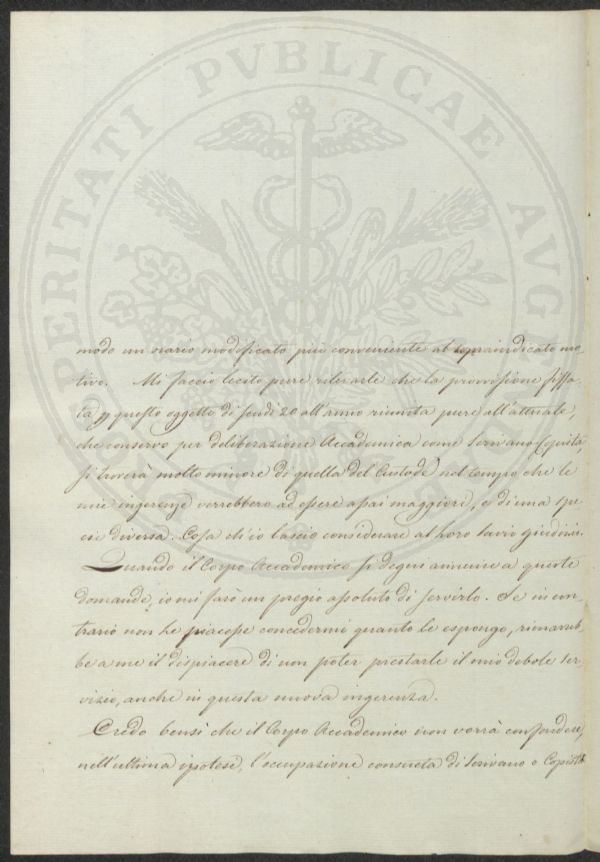 PROSPERITATI PVBLICAE AVGENDAE
modo un orario modificato più conveniente al sopraindicato mo-
tivo. Mi faccio lecito pure rilevarle che la provvisione fissa-
ta p questo oggetto di scudi 20 all'anno riunita pure all'attuale,
che conservo per deliberazione Accademica come Scrivano Copista,
si troverà molto minore di quella del Custode nel tempo che le
mie ingerenze verrebbero ad essere assai maggiori, e di una spe-
cie diversa. Cosa ch'io lascio considerare al Loro savio giudizio.
Quando il Corpo Accademico si degni annuire a queste
domande, io mi farò un pregio assoluto di servirlo. Se in con-
trario non le piacesse concedermi quanto le espongo, rimarreb-
be a me il dispiacere di non poter prestarle il mio debole ser-
vizio, anche in questa nuova ingerenza.
Credo bensì che il Corpo Accademico non vorrà confondere,
nell'ultima ipotesi, l'occupazione consueta di Scrivano o Copista